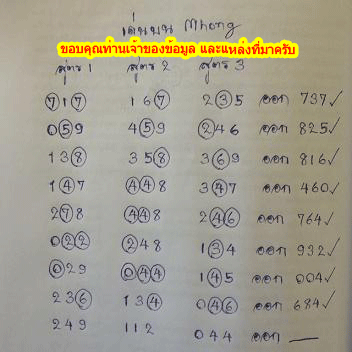 เด่นบน Mhong
ขอบคุณท่านเจ้าของข้อมูล และแหล่งที่มาครับ
สูตร 1 สูตร 2 สูตร 3
717 167 235 ออก 737✓
059 459 246 ออก 825✓
138 358 369 ออก 816✓
147 448 347 ออก 460✓
278 448 246 ออก 764✓
022 248 134 ออก 932✓
029 044 145 ออก 004✓
236 134 046 ออก 684✓
249 112 044 ออก —